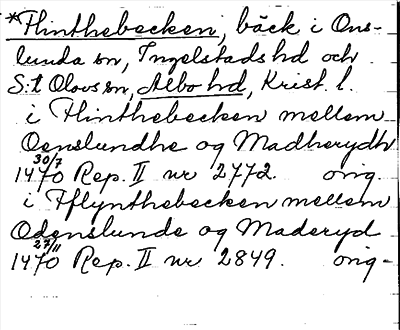 *Flinthebecken, bäck i Ons-
lunda sn, Ingelstads hd och
S:t Olovs sn, Albo hd, Krist. l.
i Flinthebecken mellem
Oenslundhe og Madherydh
30/7
1470 Rep. II nr 2772. orig.
i Fflynthebecken mellem
Odenslunde og Maderyd
27/11
1470 Rep. II nr 2849. orig-